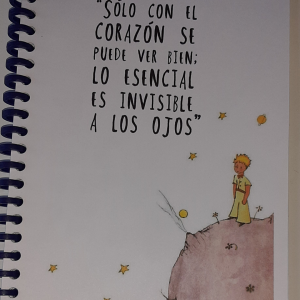 "SÓLO CON EL
CORAZÓN SE
PUEDE VER BIEN;
LO ESENCIAL
ES INVISIBLE
A LOS OJOS"